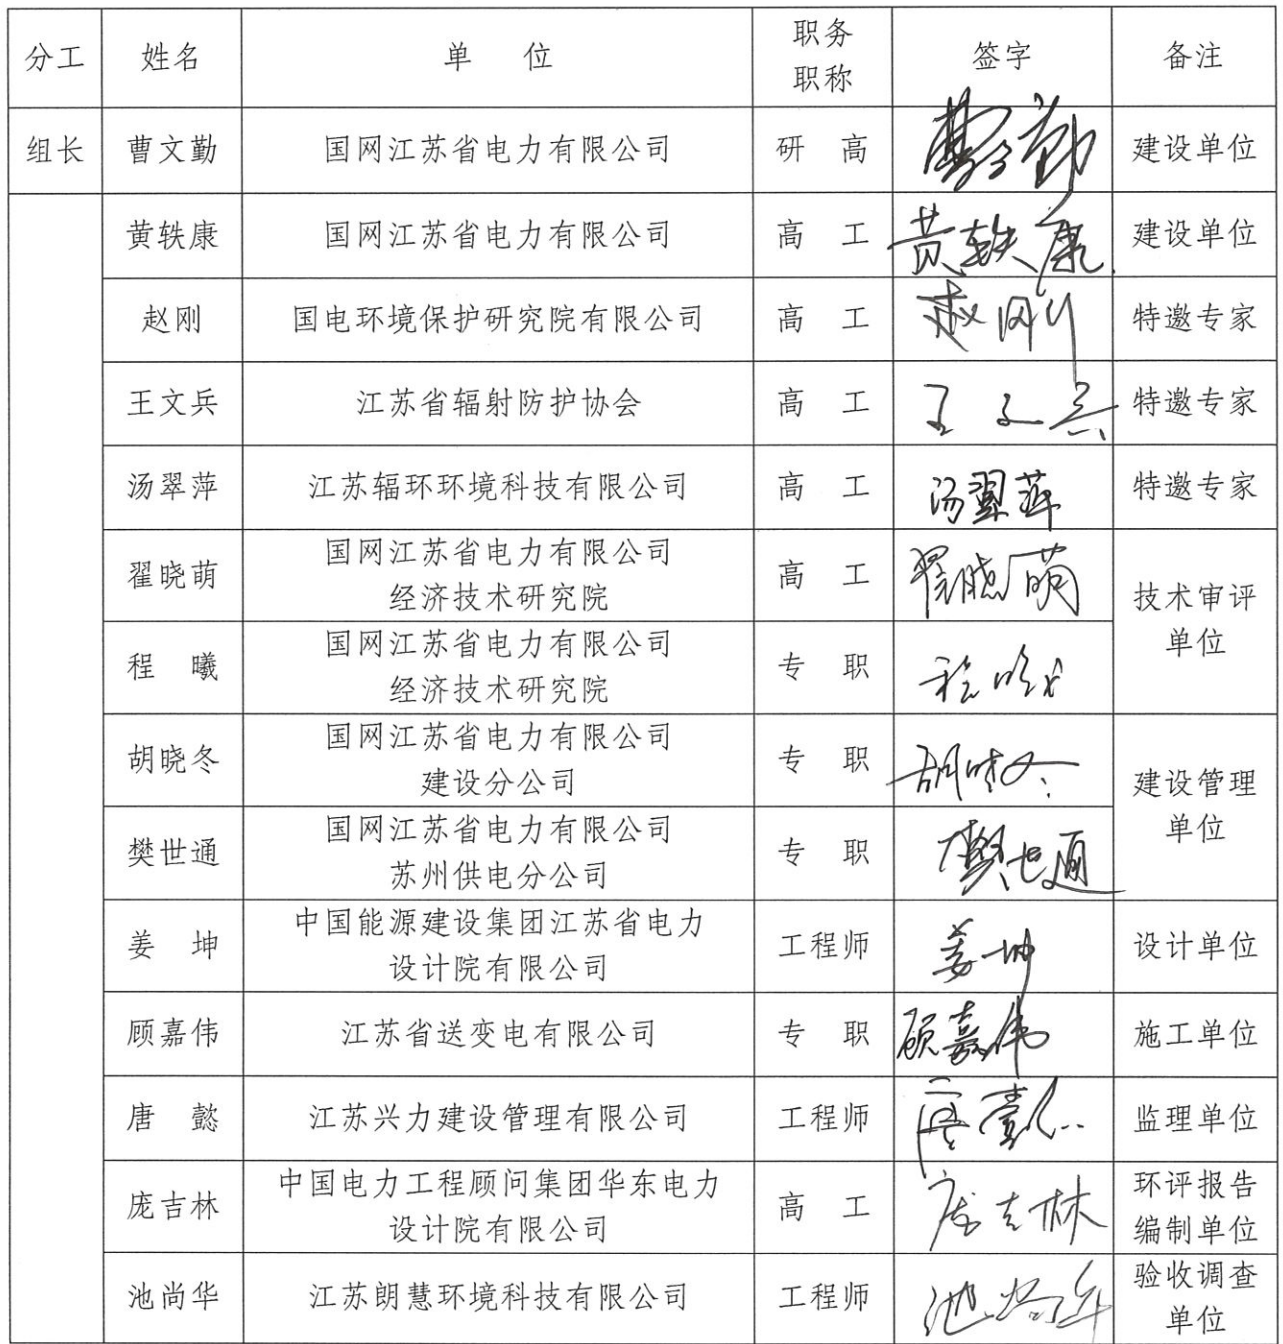 分工 姓名 单 位 职务 职称 签字 备注
组长 曹文勤 国网江苏省电力有限公司 研 高 曹文勤 建设单位
黄轶康 国网江苏省电力有限公司 高 工 黄轶康 建设单位
赵刚 国电环境保护研究院有限公司 高 工 赵刚 特邀专家
王文兵 江苏省辐射防护协会 高 工 王文兵 特邀专家
汤翠萍 江苏辐环环境科技有限公司 高 工 汤翠萍 特邀专家
翟晓萌 国网江苏省电力有限公司 经济技术研究院 高 工 翟晓萌 技术审评 单位
程 曦 国网江苏省电力有限公司 经济技术研究院 专 职 程曦
胡晓冬 国网江苏省电力有限公司 建设分公司 专 职 胡晓冬 建设管理 单位
樊世通 国网江苏省电力有限公司 苏州供电分公司 专 职 樊世通
姜 坤 中国能源建设集团江苏省电力 设计院有限公司 工程师 姜坤 设计单位
顾嘉伟 江苏省送变电有限公司 专 职 顾嘉伟 施工单位
唐 懿 江苏兴力建设管理有限公司 工程师 唐懿 监理单位
庞吉林 中国电力工程顾问集团华东电力 设计院有限公司 高 工 庞吉林 环评报告 编制单位
池尚华 江苏朗慧环境科技有限公司 工程师 池尚华 验收调查 单位